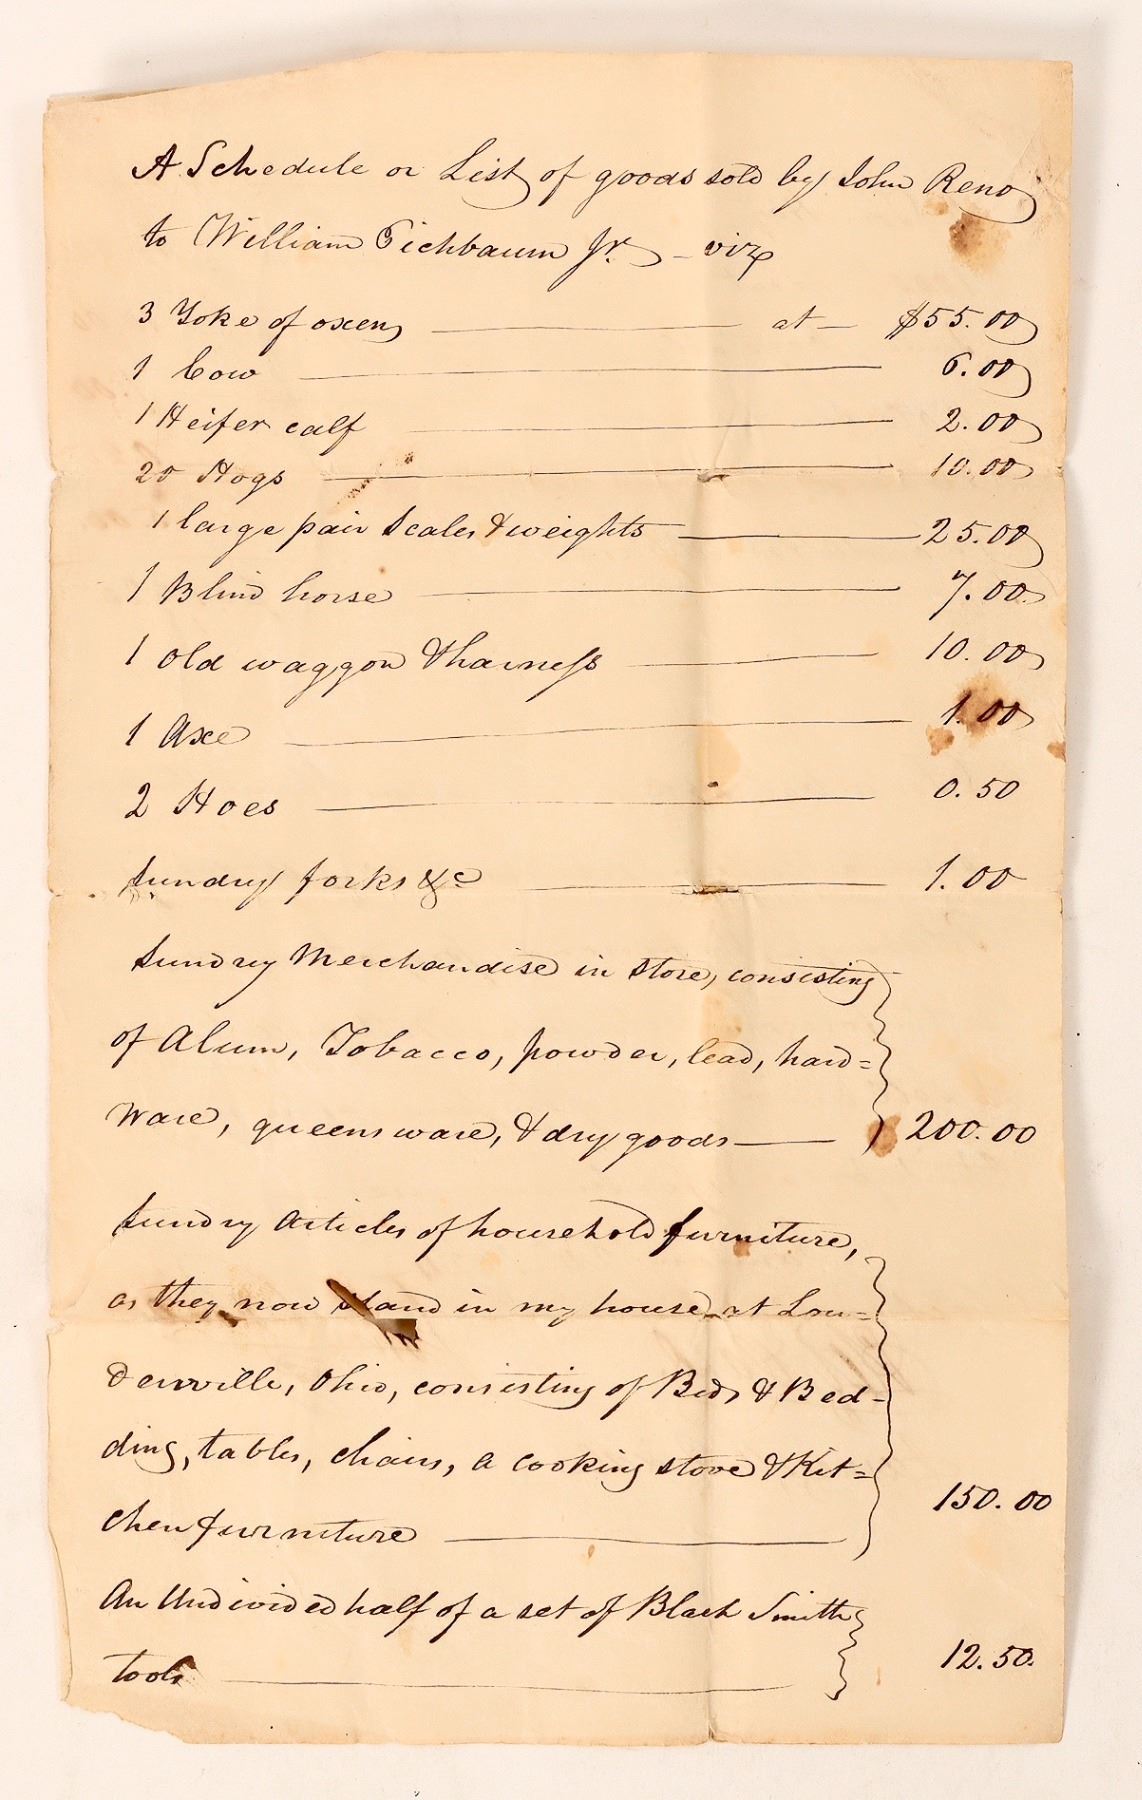 A Schedule or List of goods sold by John Reno
to William Eichbaum Jr. - viz
3 Yoke of oxen at $55.00
1 Cow 6.00
1 Heifer calf 2.00
20 Hogs 10.00
1 large pair Scales & weights 25.00
1 Blind horse 7.00
1 old waggon & harness 10.00
1 Axe 1.00
2 Hoes 0.50
Sundry forks &c 1.00
Sundry Merchandise in store, consisting
of Alum, Tobacco, powder, lead, hard=
ware, queensware, & dry goods 200.00
Sundry Articles of household furniture,
as they now stand in my house at Lou=
denville, Ohio, consisting of Beds & Bed=
ding, tables, chairs, a cooking stove & Kit=
chen furniture 150.00
An Undivided half of a set of Black Smith
tools 12.50.